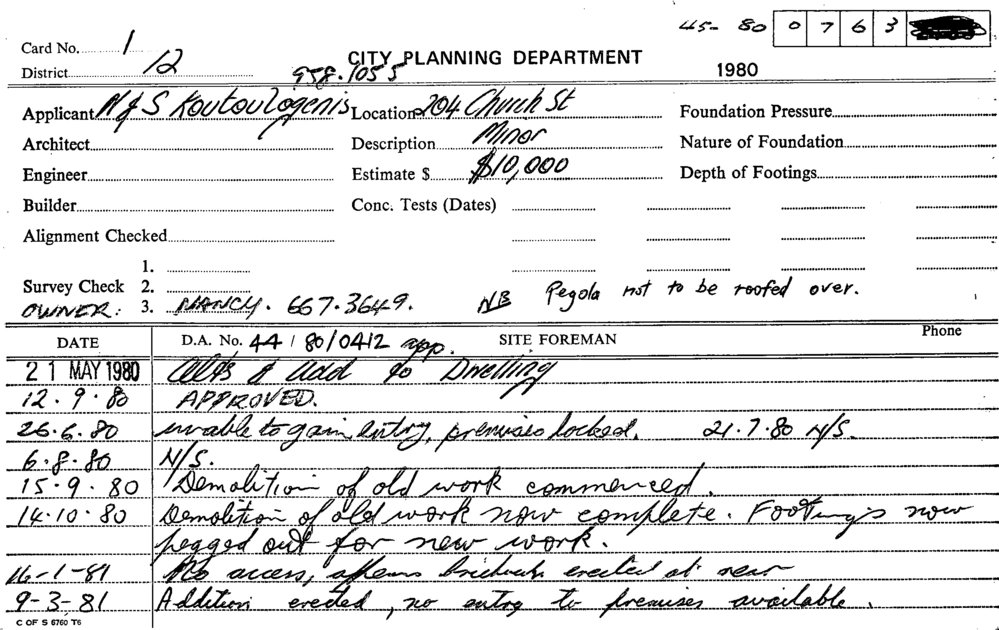 45- 80 0 7 6 3
Card No. 1
District 12
958.1055
CITY PLANNING DEPARTMENT
1980
Applicant N & S Koutoulogenis Location 204 Church St Foundation Pressure
Architect Description Minor Nature of Foundation
Engineer Estimate $ $10,000 Depth of Footings
Builder Conc. Tests (Dates)
Alignment Checked
1.
Survey Check 2.
OWNER: 3. NANCY. 667.3649. NB Pegola not to be roofed over.
DATE D.A. No. 44 / 80/0412 app. SITE FOREMAN Phone
21 MAY 1980 Alts & Add to Dwelling
12.9.80 APPROVED.
26.6.80 unable to gain entry, premises locked. 21.7.80 N/S.
6.8.80 N/S.
15.9.80 Demolition of old work commenced.
14.10.80 Demolition of old work now complete. Footings now
pegged out for new work.
16-1-81 No access, appears brickwork erected at rear
9-3-81 Addition erected, no entry to premises available.
C OF S 6760 T6